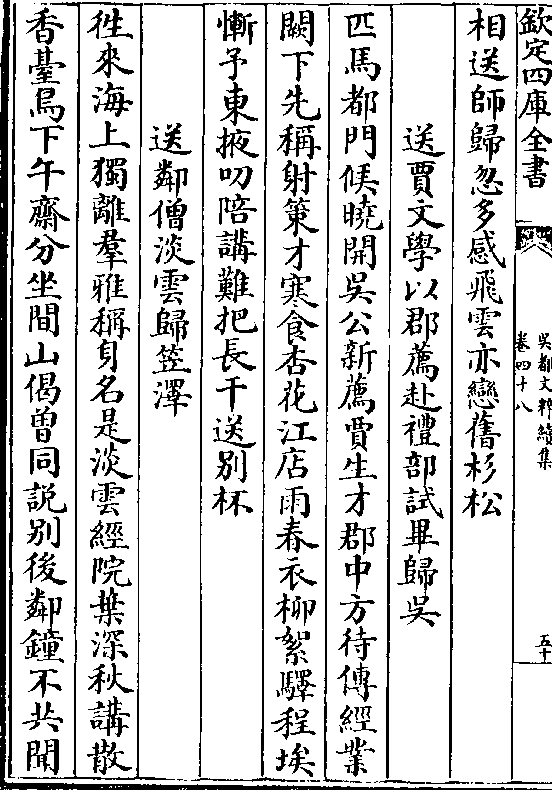 欽定四庫全書
吳都文粹續集
卷四十八
五十
相送師歸忽多感飛雲亦戀舊杉松
送賈文學以郡薦赴禮部試畢歸吳
匹馬都門候曉開吳公新薦賈生才郡中方待傳經業
闕下先稱射策才寒食杏花江店雨春衣柳絮驛程埃
慚予東掖叨陪講難把長干送別杯
送鄰僧淡雲歸笠澤
徃來海上獨離羣雅稱身名是淡雲經院葉深秋講散
香臺鳥下午齋分坐間山偈曽同説別後鄰鐘不共聞